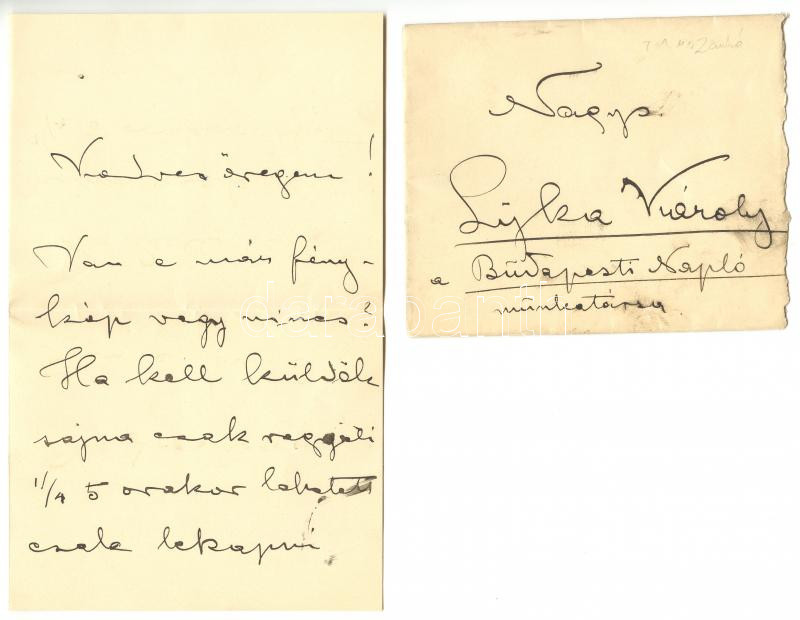 Kedves öregem!
Van e már fény-
kép vagy nincs?
Ha kell küldök
sajna csak reggeli
1/4 5 orakor lehetett
csak lekapni
Nagys.
Lyka Károly
a Budapesti Napló
munkatársa
darabanth